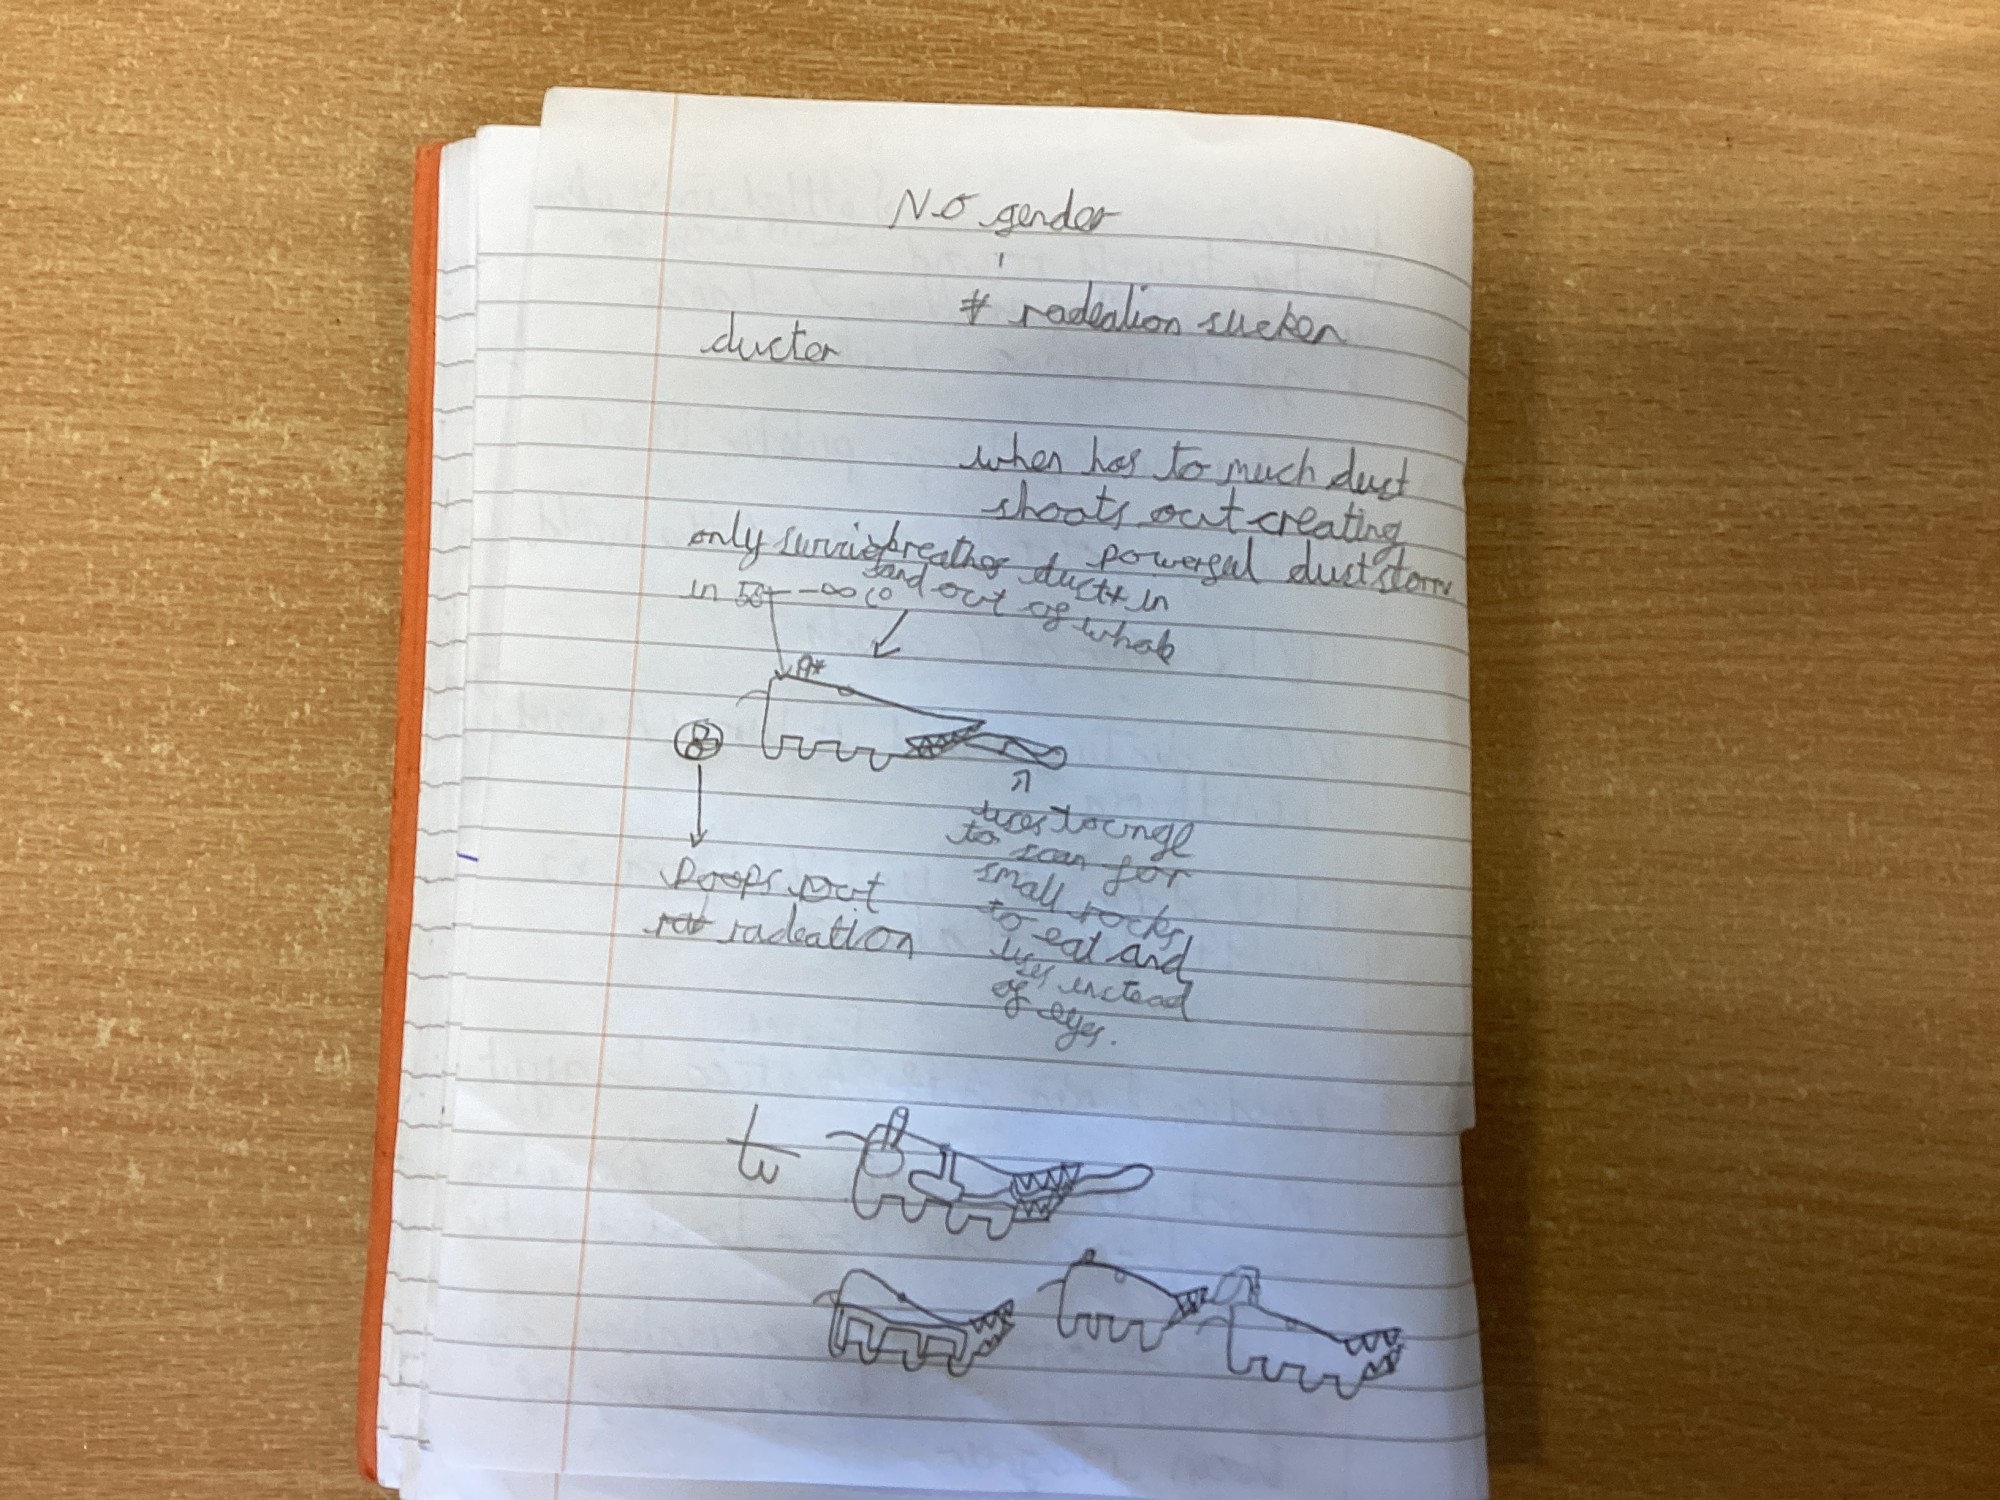 No gender
# radeation sucker
ducter
when has to much dust
shoots out creating
powergul duststorm
only survie
in 50 - -∞ co
breathes duct in
and out of whole
poops out
radeation
uses toungl
to scan for
small rocks
to eat and
uses instead
of eyes.